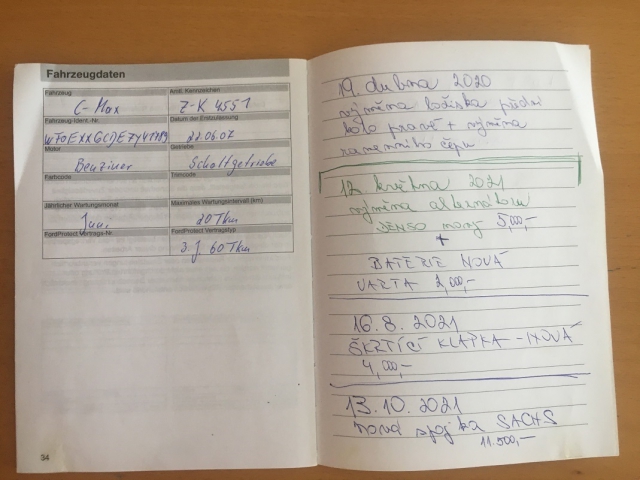 Fahrzeugdaten
Fahrzeug
Amtl. Kennzeichen
C-Max
Z-K 4551
Fahrzeug-Ident.-Nr.
Datum der Erstzulassung
22.06.07
Motor
Getriebe
Benziner
Schaltgetriebe
Farbcode
Trimcode
Jährlicher Wartungsmonat
Maximales Wartungsintervall (km)
Juni
20 Tkm
FordProtect Vertrags-Nr
FordProtect Vertragstyp
3.J. 60 Tkm
34
19. dubna 2020
výměna ložiska přední
kolo pravé + výměna
ramenního čepu
12. května 2021
výměna alternátoru
DENSO nový 5,000,-
+
BATERIE NOVÁ
VARTA 2,000,-
16.8.2021
ŠKRTÍCÍ KLAPKA - NOVÁ
4,000,-
13.10.2021
nová spojka SACHS
11.500,-